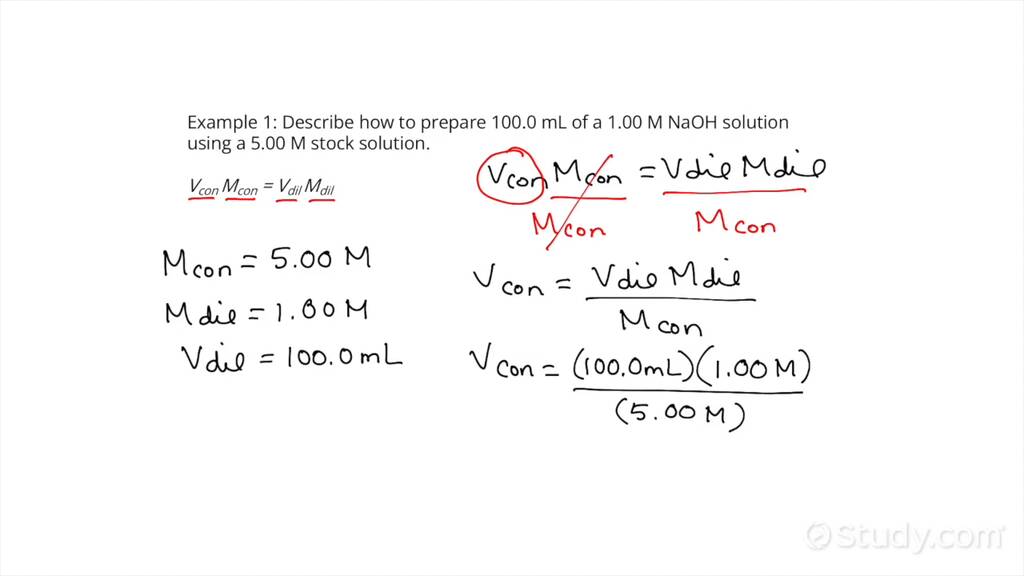 Example 1: Describe how to prepare 100.0 mL of a 1.00 M NaOH solution
using a 5.00 M stock solution.
V_con M_con = V_dil M_dil
V_con M_con = V_dil M_dil
M_con M_con
M_con = 5.00 M
M_dil = 1.00 M
V_dil = 100.0 mL
V_con = V_dil M_dil
M_con
V_con = (100.0 mL)(1.00 M)
(5.00 M)
Study.com